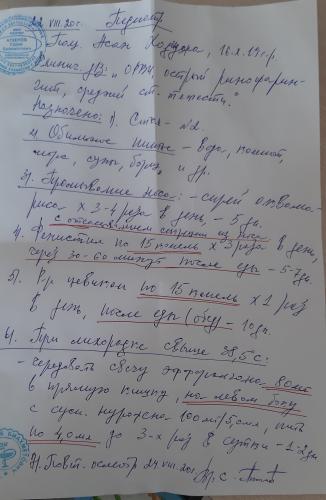 22 VIII.20г. Педиатр.
Пац. Асан Ходжара, 16.X.19 г.р.
Клинич. Дз: „ОРВИ, острый ринофарин-
гит, средней ст. тяжести."
Назначено: 1). Стол - №2.
2) Обильное питье - вода, компот,
морс, супы, борщ, и др.
3). Промывание носа: - спрей аквама-
риса х 3-4 раза в день, - 5 дн.
с отсасыванием секреции из носа
4) Фенистил по 15 капель х 3 раза в день,
через 30-60 минут после еды - 5-7 дн.
5) Р-р цевикап по 15 капель х 1 раз
в день, после еды (обед) - 10 дн.
6) При лихорадке свыше 38,5°С:
- чередовать свечу эффералгана 80 мг
в прямую кишку, на левом боку
с сусп. нурофена 100 мг/5,0 мл, пить
по 4,0 мл до 3-х раз в сутки - 1-2 дн
7). Повт. осмотр 24 VIII.20г.